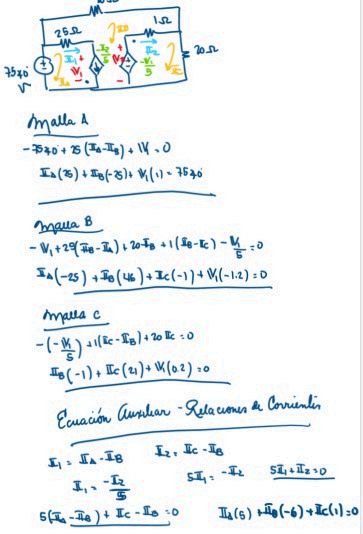 25Ω
1Ω
20Ω
75∡0°
V
I_1
V_1
-I_2/5
V_2
-V_1/5
I_2
I_A
I_B
I_C
Malla A
-75∡0° + 25(I_A-I_B) + V_1 = 0
I_A(25) + I_B(-25) + V_1(1) = 75∡0°
Malla B
-V_1 + 25(I_B-I_A) + 20I_B + 1(I_B-I_C) - V_1/5 = 0
I_A(-25) + I_B(46) + I_C(-1) + V_1(-1.2) = 0
Malla C
-(-V_1/5) + 1(I_C-I_B) + 20I_C = 0
I_B(-1) + I_C(21) + V_1(0.2) = 0
Ecuación Auxiliar - Relaciones de Corrientes
I_1 = I_A - I_B I_2 = I_C - I_B
I_1 = -I_2/5 5I_1 = -I_2 5I_1 + I_2 = 0
5(I_A - I_B) + I_C - I_B = 0 I_A(5) + I_B(-6) + I_C(1) = 0